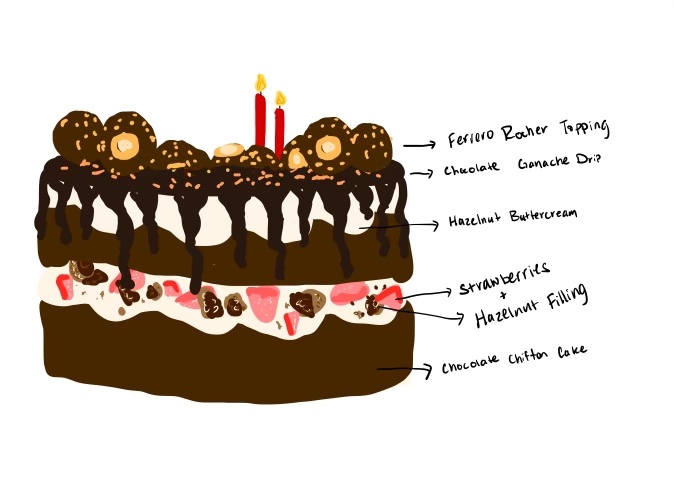 Ferrero Rocher Topping
Chocolate Ganache Drip
Hazelnut Buttercream
Strawberries
+
Hazelnut Filling
Chocolate Chiffon Cake